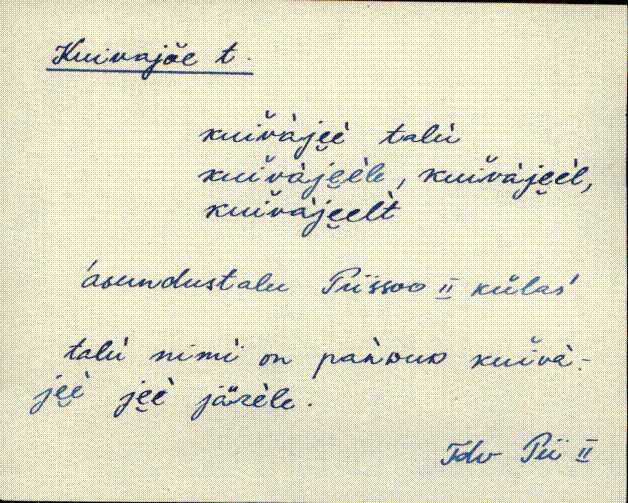 Kuivajõe t.
kuiv̆àje̮è talù
kuiv̆àje̮èle, kuiv̆àje̮èl,
kuiv̆àje̮elt̀
'asundustalu Piissoo II külas'
talù nimì on pańDuD kuiv̆à-
je̮è je̮è järèle.
Tdv Pii II